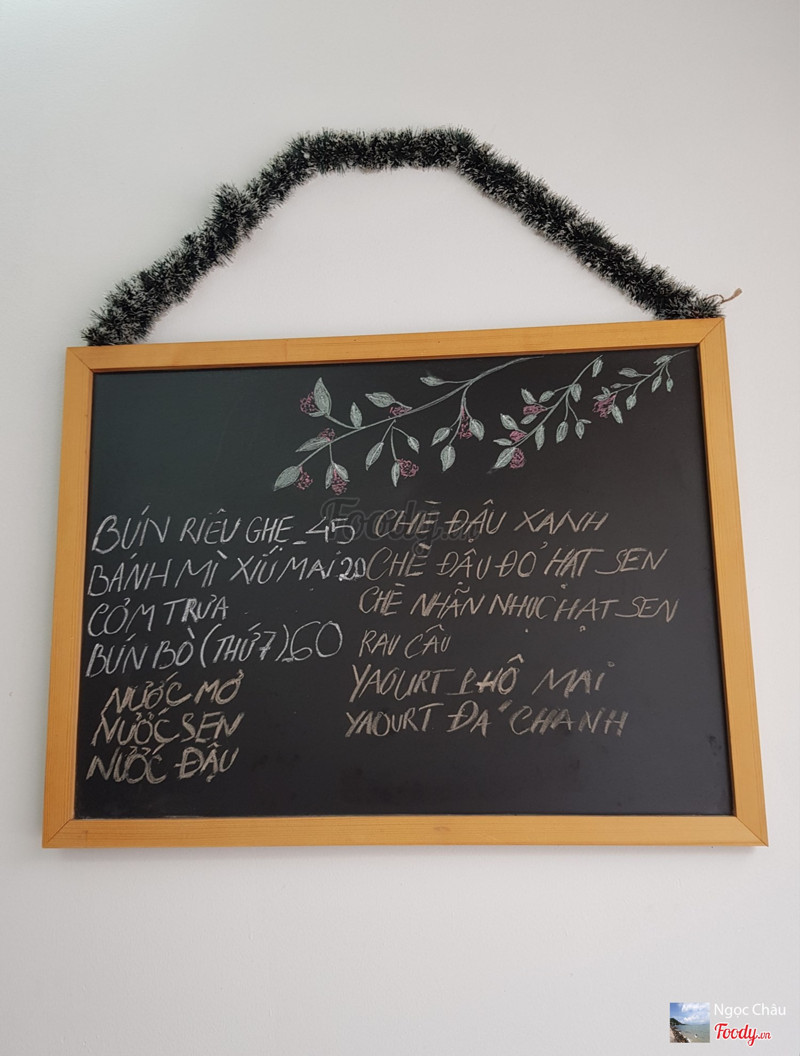 BÚN RIÊU GHẸ_45
BÁNH MÌ XÍU MẠI 20
CƠM TRƯA
BÚN BÒ (THỨ 7)_60
NƯỚC MƠ
NƯỚC SEN
NƯỚC ĐẬU
CHÈ ĐẬU XANH
CHÈ ĐẬU ĐỎ HẠT SEN
CHÈ NHÃN NHỤC HẠT SEN
RAU CÂU
YAOURT PHÔ MAI
YAOURT ĐÁ CHANH
Foody.vn
Ngọc Châu
Foody.vn